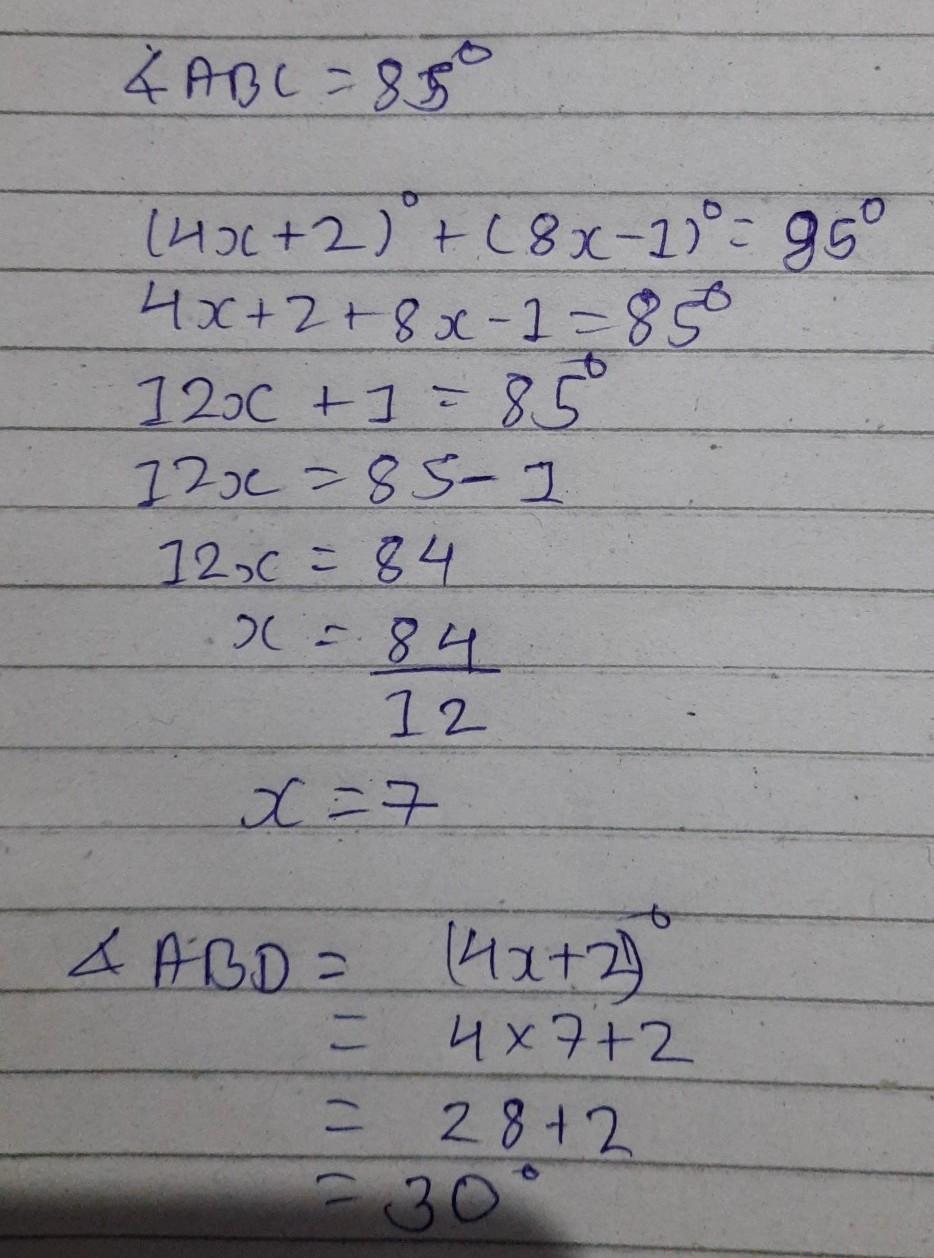 ∡ABC = 85°
(4x+2)° + (8x-1)° = 95°
4x+2+8x-1 = 85°
12x + 1 = 85°
12x = 85-1
12x = 84
x = 84
12
x = 7
∡ABD = (4x+2)°
= 4×7+2
= 28+2
= 30°